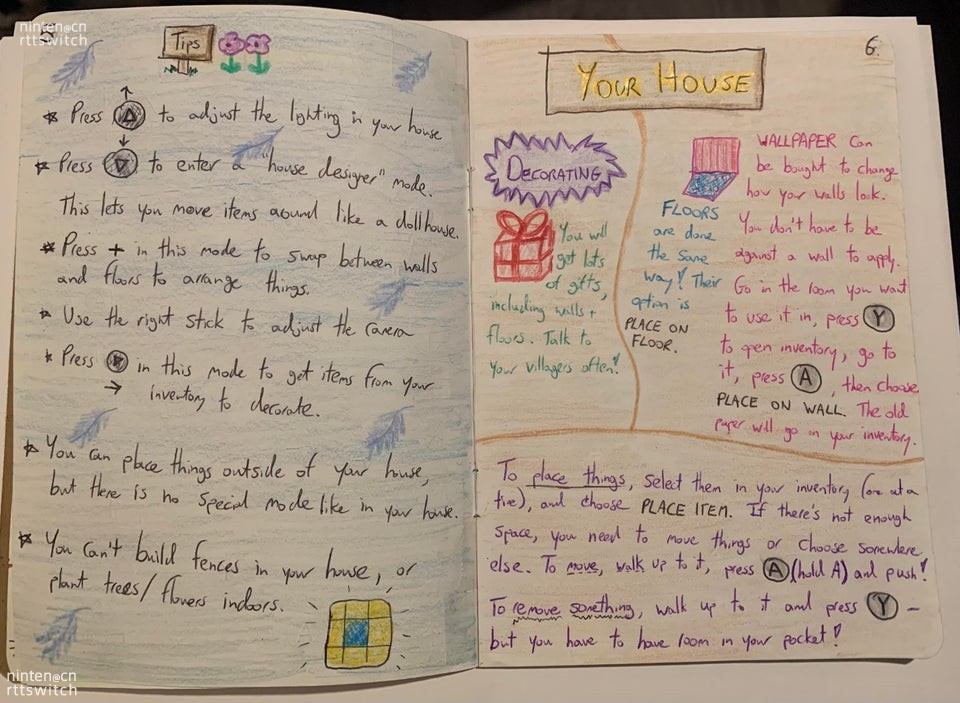 ninten@cn
rttswitch
Tips
* Press △ to adjust the lighting in your house
* Press ▽ to enter a "house designer" mode.
This lets you move items around like a dollhouse.
* Press + in this mode to swap between walls
and floors to arrange things.
* Use the right stick to adjust the camera
* Press in this mode to get items from your
inventory to decorate.
* You can place things outside of your house,
but there is no special mode like in your house.
* You can't build fences in your house, or
plant trees/flowers indoors.
ninten@cn
rttswitch
6.
YOUR HOUSE
DECORATING
You will
get lots
of gifts,
including walls +
floors. Talk to
your villagers often!
FLOORS
are done
the same
way! Their
option is
PLACE ON
FLOOR.
WALLPAPER can
be bought to change
how your walls look.
You don't have to be
against a wall to apply.
Go in the room you want
to use it in, press Y
to open inventory, go to
it, press A, then choose
PLACE ON WALL. The old
paper will go in your inventory.
To place things, select them in your inventory (one at a
time), and choose PLACE ITEM. If there's not enough
space, you need to move things or choose somewhere
else. To move, walk up to it, press A (hold A) and push!
To remove something, walk up to it and press Y -
but you have to have room in your pocket!